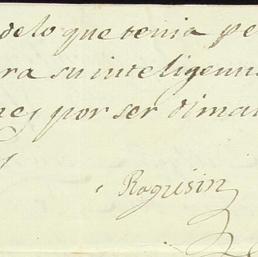 delo que tenia pe
ra su inteligenci
nes por ser dima
Roguisin